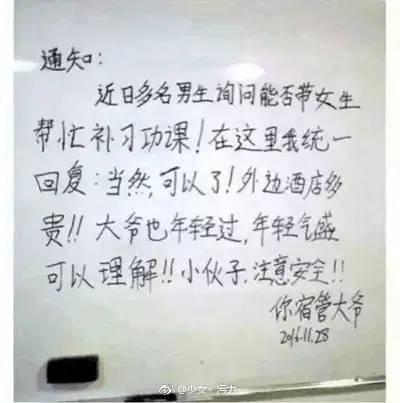 通知：
近日多名男生询问能否带女生
帮忙补习功课！在这里我统一
回复：当然，可以了！外边酒店多
贵！！大爷也年轻过，年轻气盛
可以理解！！小伙子，注意安全！！
你宿管大爷
2016.11.28
@少女、污力